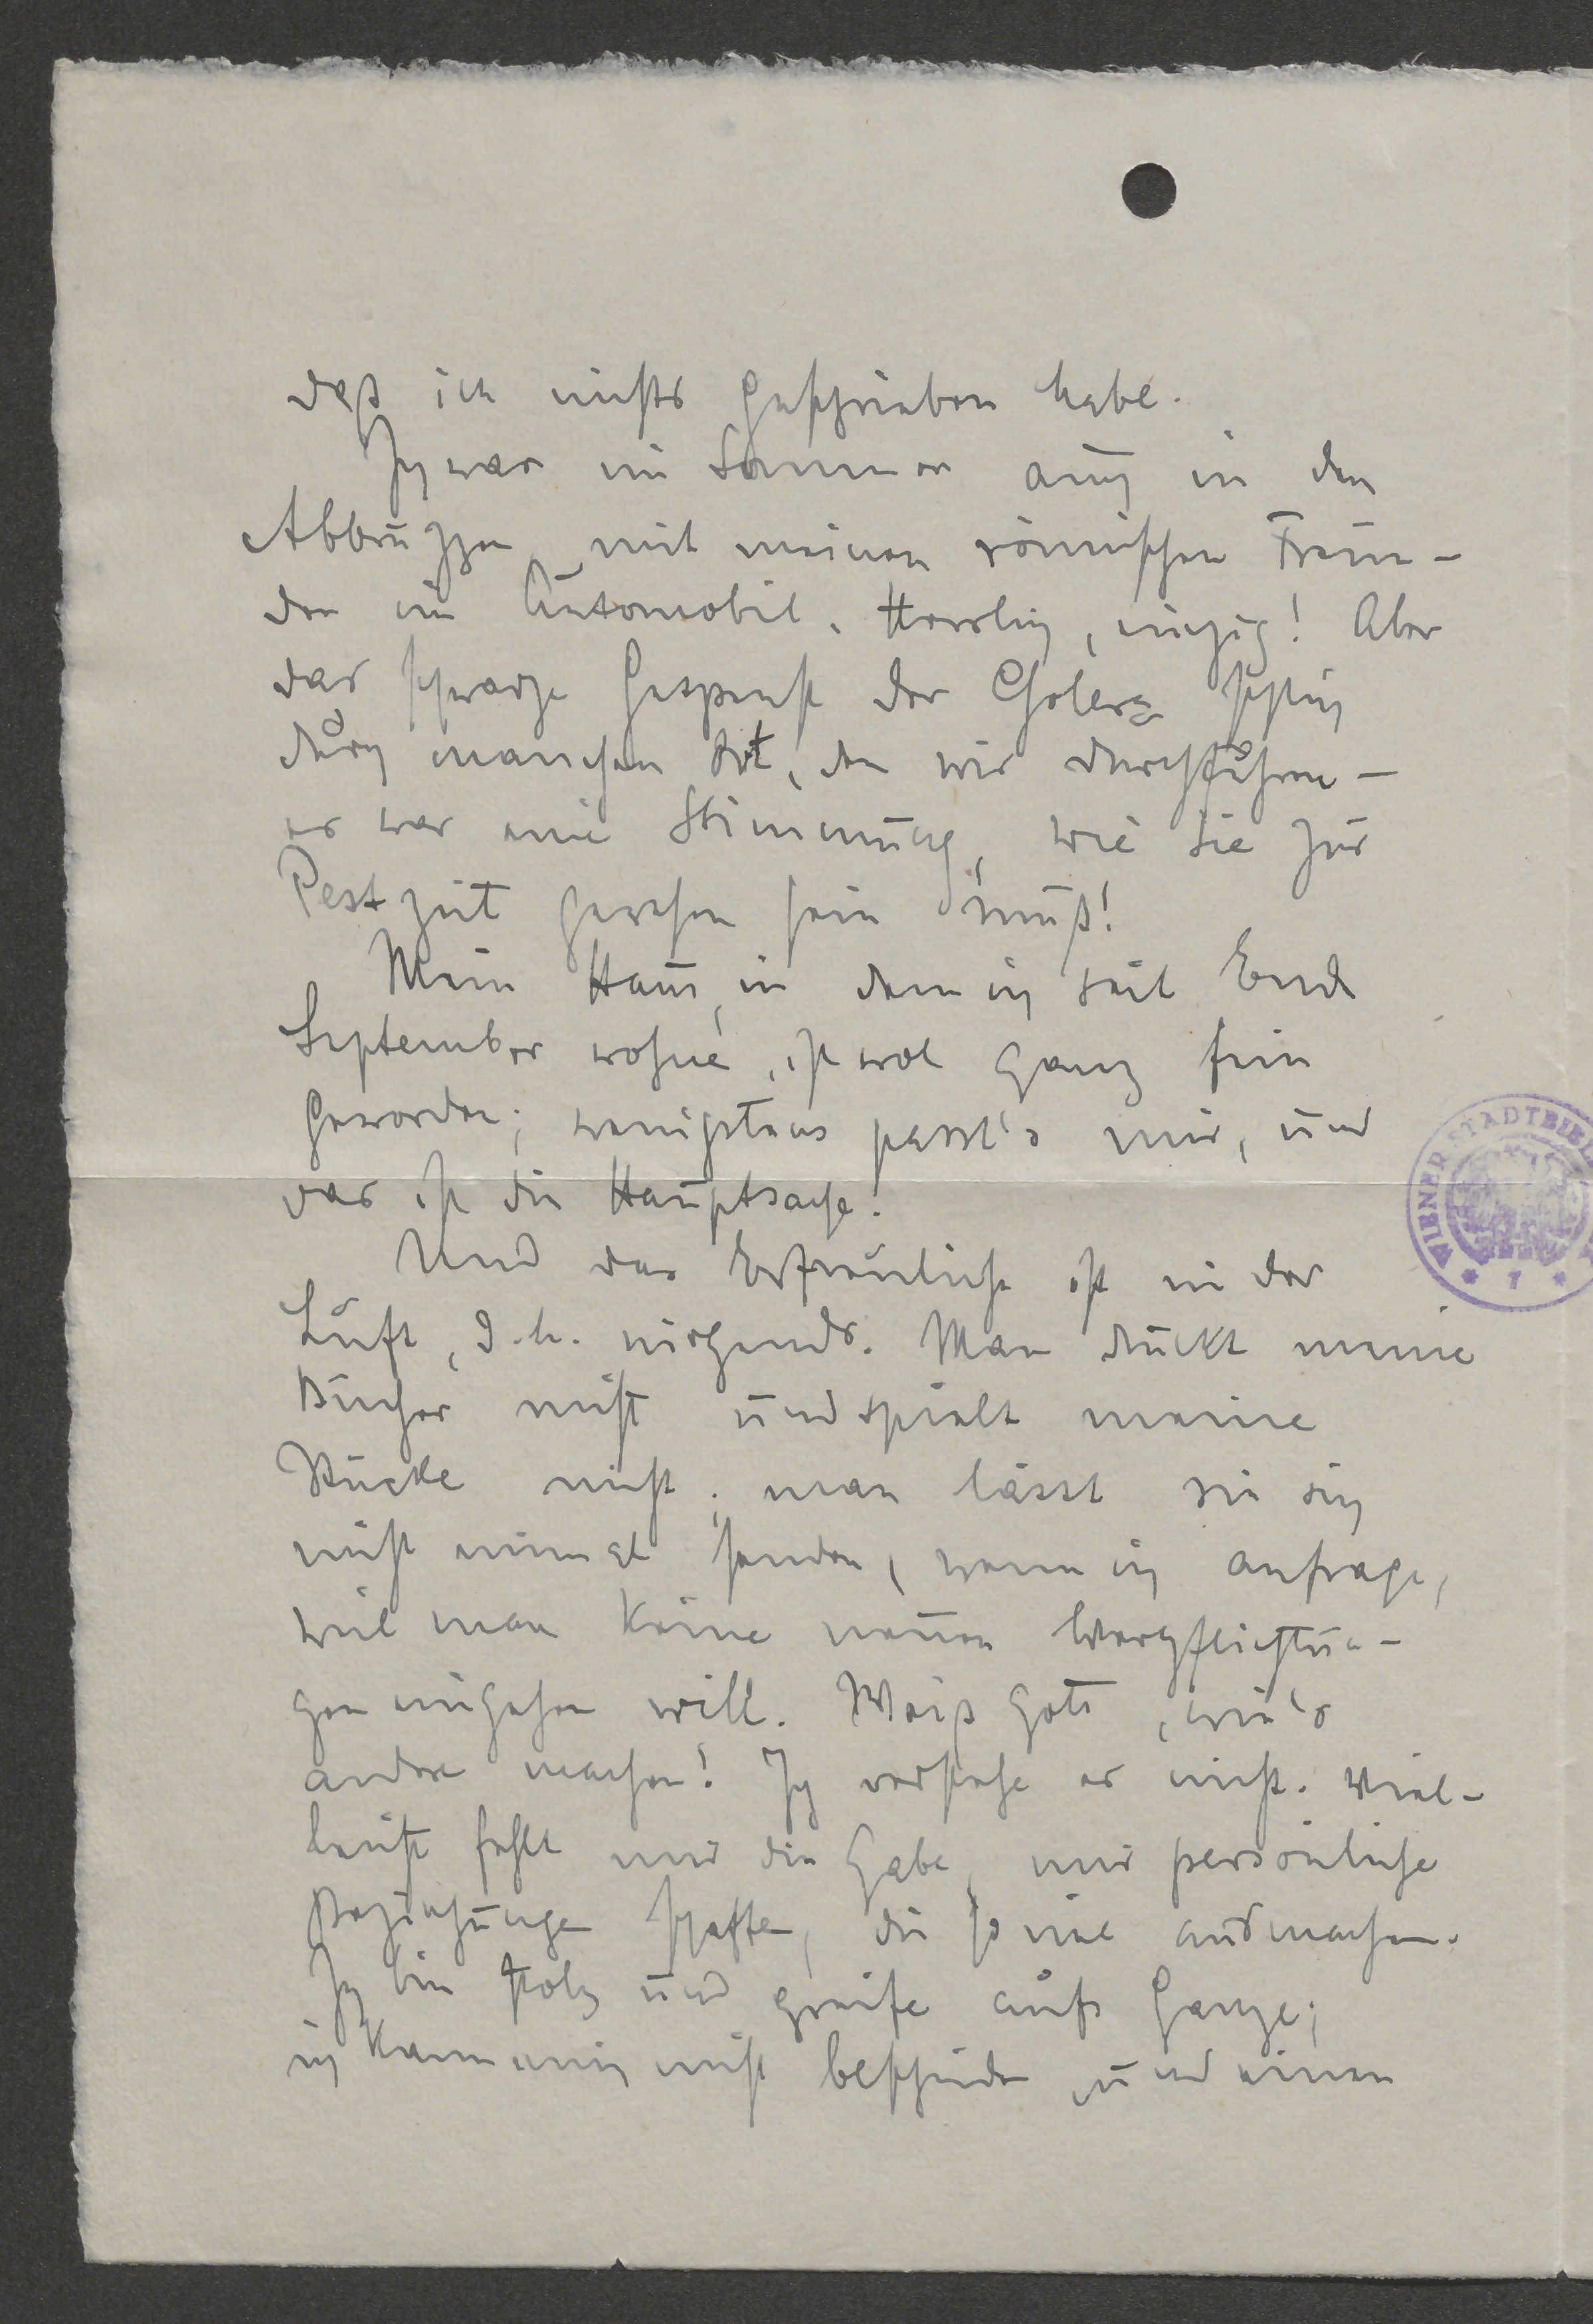 daß ich nichts geschrieben habe.
Ich war im Sommer auch in den
Abbruzzen mit meinen römischen Freun-
den im Automobil. Herrlich, einzig! Aber
das schwarze Gespenst der Cholera schlich
durch manchen Ort, den wir durchfuhren –
es war eine Stimmung, wie sie zur
Pestzeit gewesen sein muß!
Mein Haus, in dem ich seit Ende
September wohne, ist wol ganz fein
geworden; wenigstens passt's mir, und
das ist die Hauptsache.
Und das Erfreuliche ist in der
Luft, d.h. nirgends. Man druckt meine
Bücher nicht und spielt meine
Stücke nicht; man lässt sie sich
nicht einmal senden, wenn ich anfrage,
weil man keine neuen Verpflichtun-
gen eingehen will. Weiß Gott, wie's
andere machen! Ich verstehe es nicht. Viel-
leicht fehlt mir die Gabe, mir persönliche
Beziehungen schaffen, die so viel ausmachen.
Ich bin stolz und greife aufs Ganze;
ich kann mich nicht bescheiden und einen
WIENER STADTBIBL
* 7 *